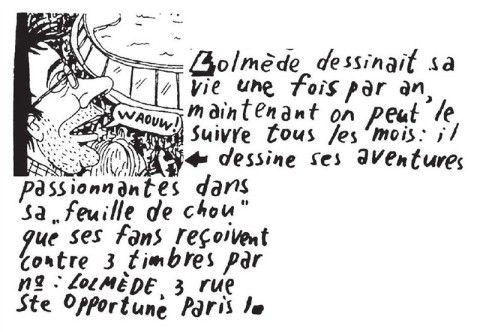 WAOUW!
Lolmède dessinait sa
vie une fois par an,
maintenant on peut le
suivre tous les mois: il
← dessine ses aventures
passionnantes dans
sa „feuille de chou"
que ses fans reçoivent
contre 3 timbres par
nº : LOLMÈDE, 3 rue
Ste Opportune Paris 1.